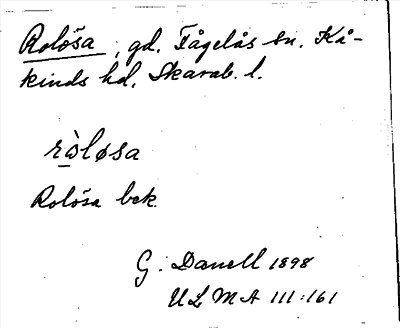 Rolösa, gd. Fågelås sn. Kå-
kinds hd. Skarab. l.
ròløsa
Rolösa bek.
G. Danell 1898
ULMA 111:161